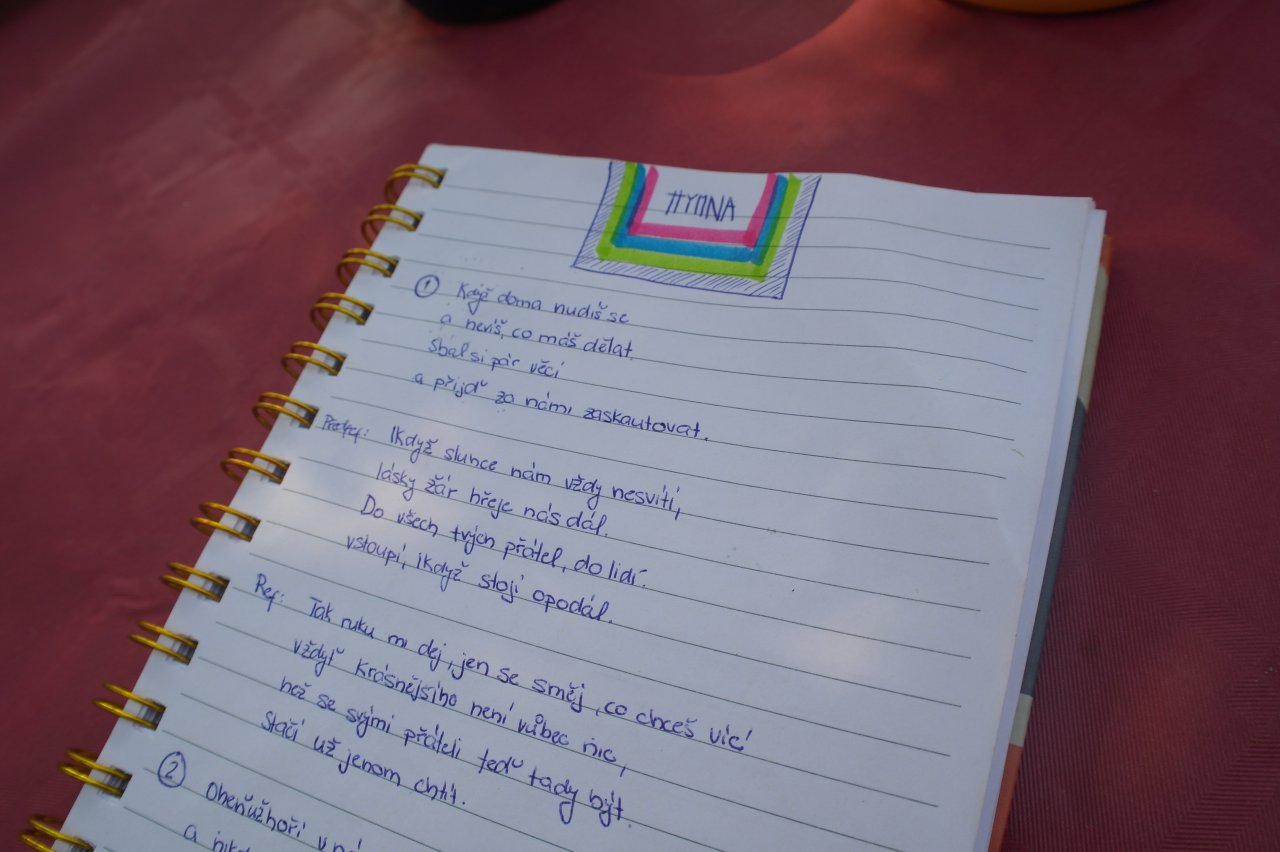 HYMNA
① Když doma nudíš se
a nevíš, co máš dělat
sbal si pár věcí
a přijď za námi zaskautovat.
Předref: Ikdyž slunce nám vždy nesvítí,
lásky žár hřeje nás dál.
Do všech tvých přátel, do lidí.
vstoupí, ikdyž stojí opodál.
Ref: Tak ruku mi dej, jen se směj, co chceš víc
vždyť krásnějšího není vůbec nic,
než se svými přáteli teď tady být.
Stačí už jenom chtít.
② Oheň už hoří v
a